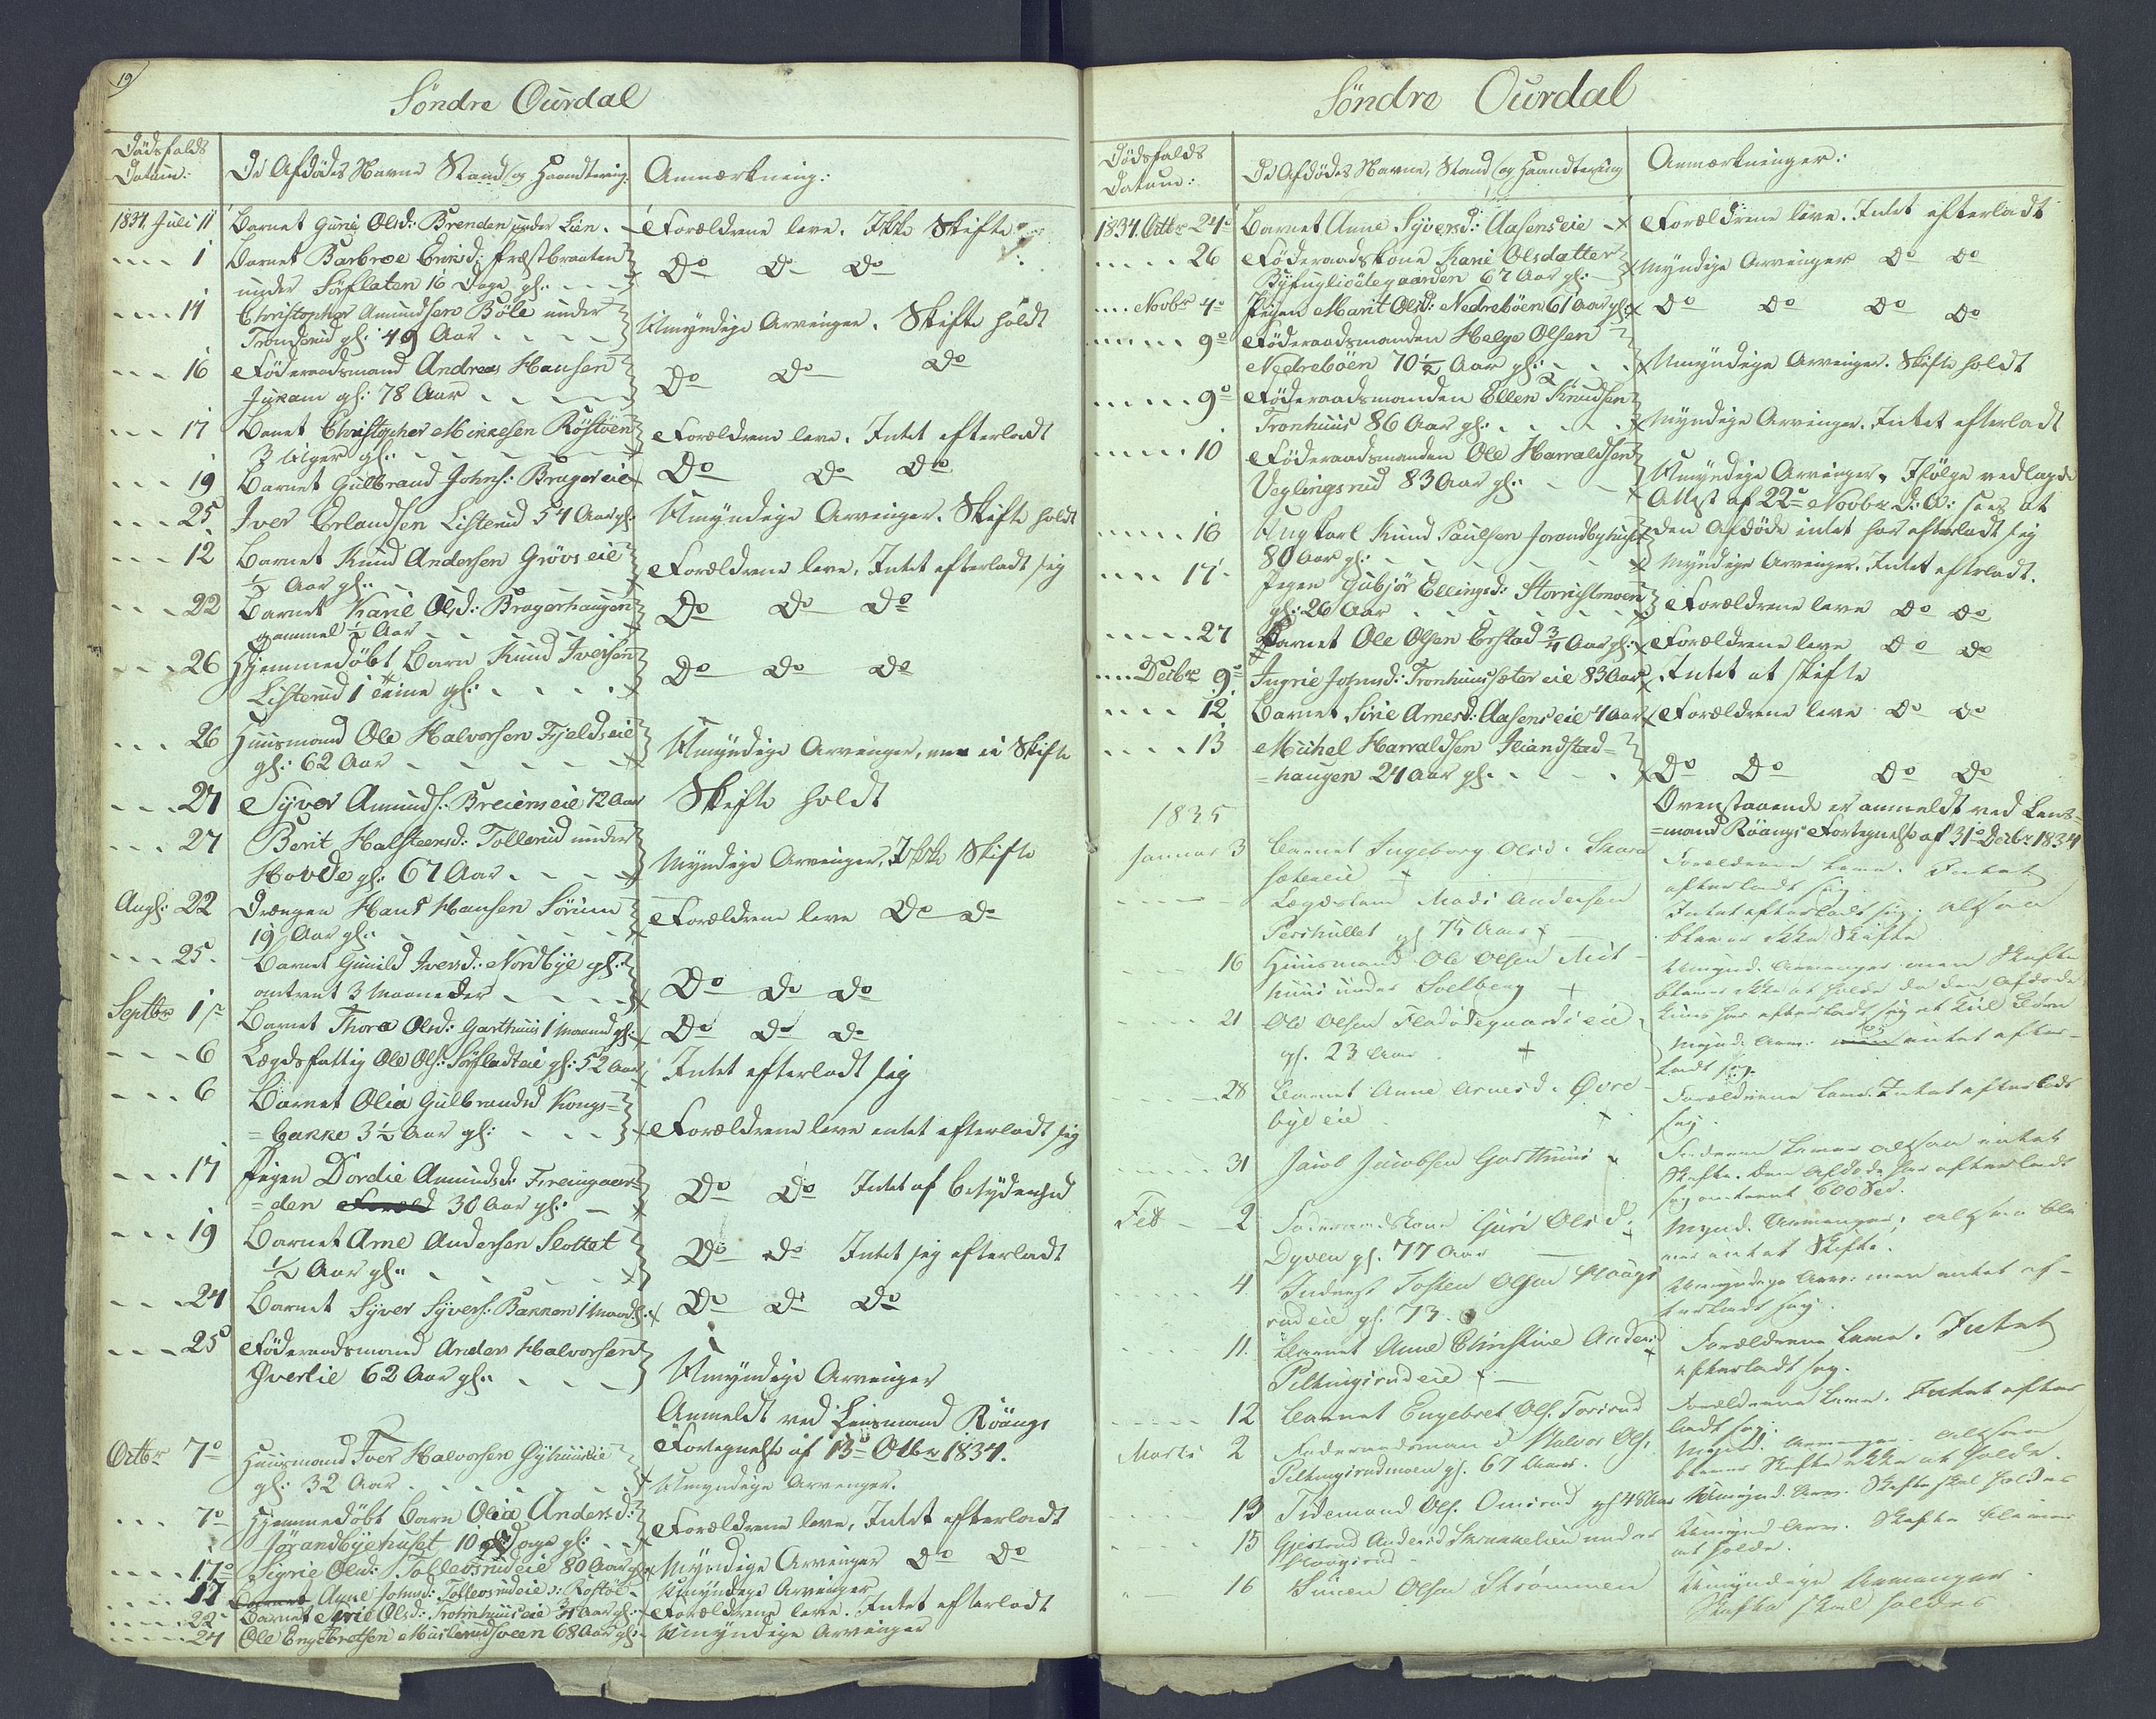 19
Söndre Ourdal
Dödsfalds
Datum:
De Afdödes Navne Stand og Haandtering:
Anmærkning:
1834 Juli 11 Barnet Guri Olsd: Brenden under Lien. Forældrene leve. Ikke Skifte
1 Barnet Barbroe Eriksd: Præstbraaten
under Sörflaten 16 Dage gl: Do Do Do
14 Christopher Amundsen Böle under
Tronderud gl: 49 Aar Umyndige Arvinger. Skifte holdt
16 Föderaadsmand Andreas Hansen
Juvkam gl: 78 Aar Do Do Do
17 Barnet Christopher Mikkelsen Röstöen
3 Uger gl: Forældrene leve. Intet efterladt
19 Barnet Gulbrand Johns: Brager eie Do Do Do
25 Iver Erlandsen Listerud 54 Aar gl: Umyndige Arvinger. Skifte holdt
12 Barnet Knud Andersen Grövs eie
½ Aar gl: Forældrene leve, Intet efterladt sig
22 Barnet Kari Olsd: Bragerhaugen
gammel ½ Aar Do Do Do
26 Hjemmedöbt Barn Knud Iversen
Listerud 1 Time gl: Do Do Do
26 Huusmand Ole Halvorsen Fjelds eie
gl: 62 Aar Umyndige Arvinger, men ei Skifte
27 Syver Amunds: Breiens eie 72 Aar Skifte holdt
27 Berit Halsteensd: Tollerud under
Hovde gl: 67 Aar Myndige Arvinger, Ikke Skifte
Augs: 22 Drengen Hans Hansen Sörum
19 Aar gl: Forældrene leve Do Do
25 Barnet Gunild Iversd: Nordbye gl:
omtrent 3 Maaneder Do Do Do
Septbr 1 Barnet Thora Olsd: Garthuus 1 Maaned gl: Do Do Do
6 Lægdsfattig Ole Ols: Sörfladt eie gl: 52 Aar Intet efterladt sig
6 Barnet Olia Gulbrandsd Kongs=
=bakke 3½ Aar gl: Forældrene leve intet efterladt sig
17 Pigen Dordie Amundsd: Frengaar=
=den 30 Aar gl: Do Do Intet af betydenhed
19 Barnet Arne Andersen Slottet
½ Aar gl: Do Do Intet sig efterladt
24 Barnet Syver Syvers: Bakken 1 Maand gl: Do Do Do
25 Föderaadsmand Anders Halvorsen
Qverlie 62 Aar gl: Umyndige Arvinger
Anmeldt ved Lensmand Röangs
Fortegnelse af 13 Octbr 1834.
Octbr 7 Huusmand Iver Halvorsen Gyhuus eie
gl: 32 Aar Umyndige Arvinger.
7 Hjemmedöbt barn Olia Andersd:
Jörandbyehuset 10 Dage gl: Forældrene leve, Intet efterladt
17 Sigrie Olsd: Tollefsrud eie 80 Aar gl: Myndige Arvinger Do Do
17 Barnet Anne Johnsd: Tollevsrud eie Umyndige Arvinger
22 Barnet Siri Olsd: Tronhuus eie ¾ Aar gl: Forældrene leve. Intet efterladt
24 Ole Engebretsen Muslerudsveen 68 Aar gl: Umyndige Arvinger
Söndre Ourdal
Dödsfalds
Datum:
De Afdödes Navne, Stand og Haandtering
Anmærkninger:
1834. Octbr 24 Barnet Anne Syversd: Aasens eie Forældrene leve. Intet efterladt
26 Föderaadskone Kari Olsdatter
67 Aar gl: Myndige Arvinger Do Do
Novbr 4 Pigen Marit Olsd: Nedreböen 61 Aar gl: Do Do Do Do
9 Föderaadsmanden Helge Olsen
Nedreböen 70½ Aar gl: Umyndige Arvinger. Skifte holdt
9 Föderaadsmanden Ellen Knudsen
Tronhuus 86 Aar gl: Myndige Arvinger. Intet efterladt
10 Föderaadsmanden Ole Harraldsen
Veglingsrud 83 Aar gl: Umyndige Arvinger, Ifölge vedlagde
Attest af 22 Novbr d: A: sees at
16 Ungkarl Knud Paulsen Jorandbyhuset den Afdöde intet har efterladt sig
80 Aar gl: Myndige Arvinger. Intet efterladt.
17 Pigen Gubjör Ellingsd: Storrustmoen
gl: 26 Aar Forældrene leve Do Do
27 Barnet Ole Olsen Erstad ¾ Aar gl: Forældrene leve Do Do
Decbr 9 Ingrie Johnsd: Tronhuussæter eie 83 Aar Intet at skifte
12 Barnet Siri Arnesd: Aasens eie 4 Aar Forældrene leve Do Do
13 Mickel Harraldsen Iliandstad=
=haugen 24 Aar gl: Do Do Do Do
Ovenstaaende er anmeldt ved Lens=
=mand Röangs Fortegnelse af 31 Decbr 1834
1835
Januar 3 Barnet Ingeborg Olsd: Skara
sæter eie Forældrene leve. Intet
efterladt sig
Lægdslem Mads Andersen
Pershullet gl 75 Aar Intet efterladt sig. altsaa
bliver ikke Skifte
16 Huusmand Ole Olsen Mit
huus under Solberg Umynd. Arvinger men Skifte
bliver ikke at holde da den Afdöde
kuns har efterladt sig et lidet
21 Ole Olsen Flaödegaards eie
gl. 23 Aar Mynd: Arv: intet efter-
ladt sig.
28 Barnet Anne Arnesd. Övre
bye eie Forældrene leve. Intet efterladt
sig.
31 Jacob Jacobsen Garthuus Faderen lever altsaa intet
Skifte. Den Afdöde har efterladt
sig omtrent 600 Sp.
Feb 2 Föderaadskone Guri Olsd.
Dyven gl. 77 Aar Mynd. Arvinger, altsaa bli
ver intet Skifte.
4 Inderst Tosten Olsen Haugs
rud eie gl. 73. Umyndige Arv: men intet ef-
terladt sig.
11. Barnet Anne Christine Andersd
Piltingsrud eie Forældrene leve. Intet
efterladt sig.
12 Barnet Engebret Ols. Torsrud Forældrene leve. Intet efter
ladt sig.
Marts 2 Föderaadsmand Halvor Ols.
Piltingsrudmoen gl. 67 Aar. Mynd. Arvinger. altsaa
bliver Skifte ikke at holde.
13 Tidemand Ols. Omsrud gl 48 Aar Umynd. Arv. Skifte skal holdes
15 Gjertrud Andersd Skrukkelien under
Haugsrud Umynd Arv. Skifte bliver
at holde.
16 Simen Olsen Strömmen Umyndige Arvinger
Skifte skal holdes